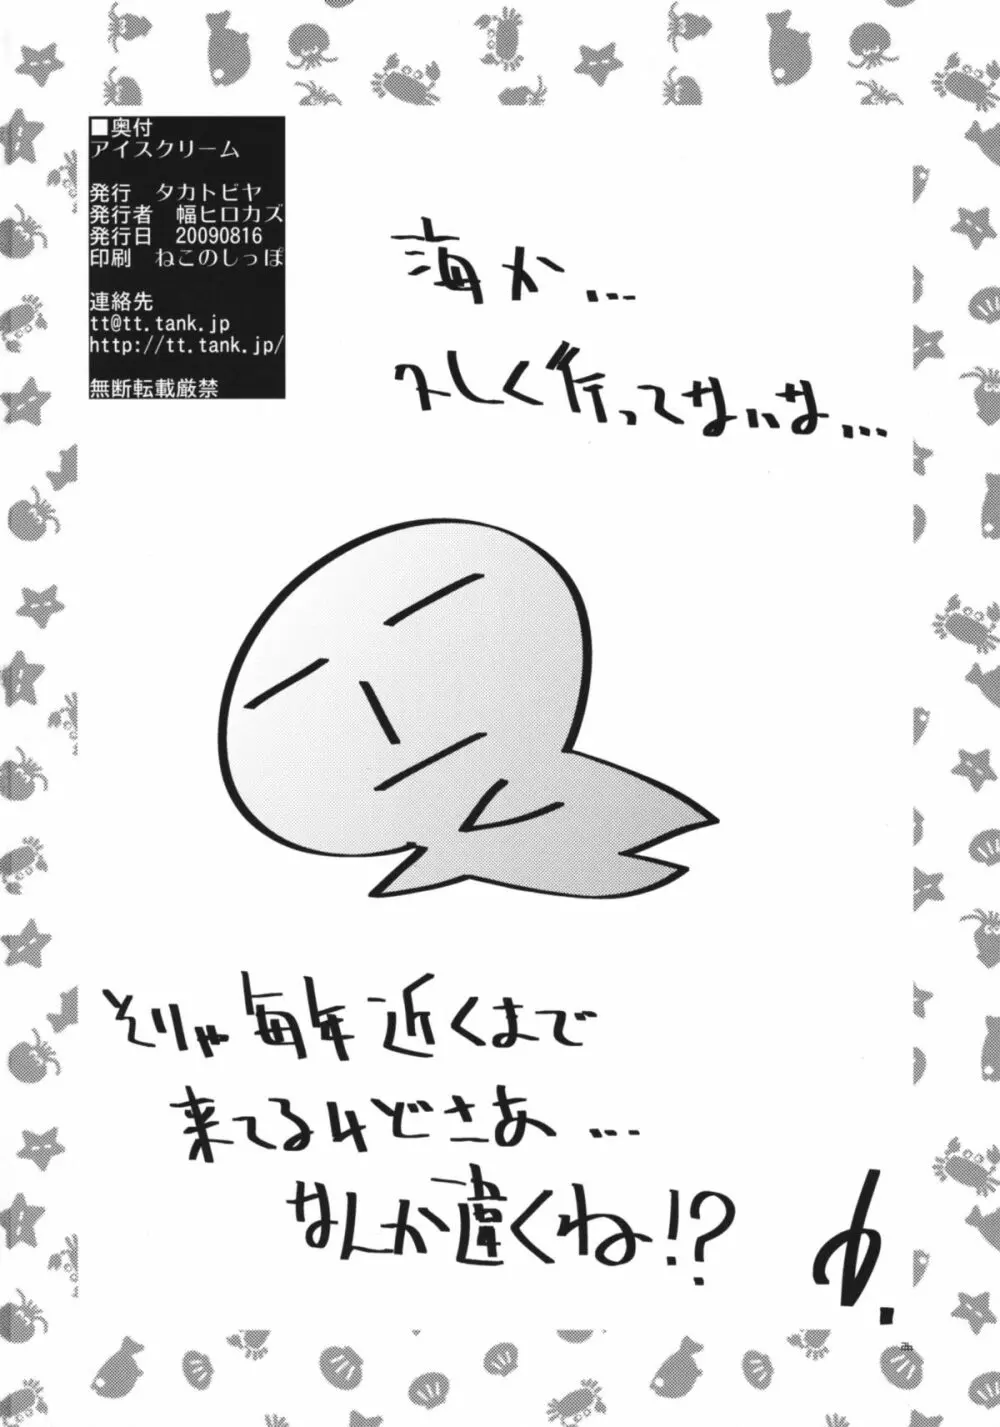 ■奥付
アイスクリーム
発行　タカトビヤ
発行者　幅ヒロカズ
発行日　20090816
印刷　ねこのしっぽ
連絡先
tt@tt.tank.jp
http://tt.tank.jp/
無断転載厳禁
海か...
久しく行ってないな...
そりゃ毎年近くまで
来てるけどさあ...
なんか違くね!?